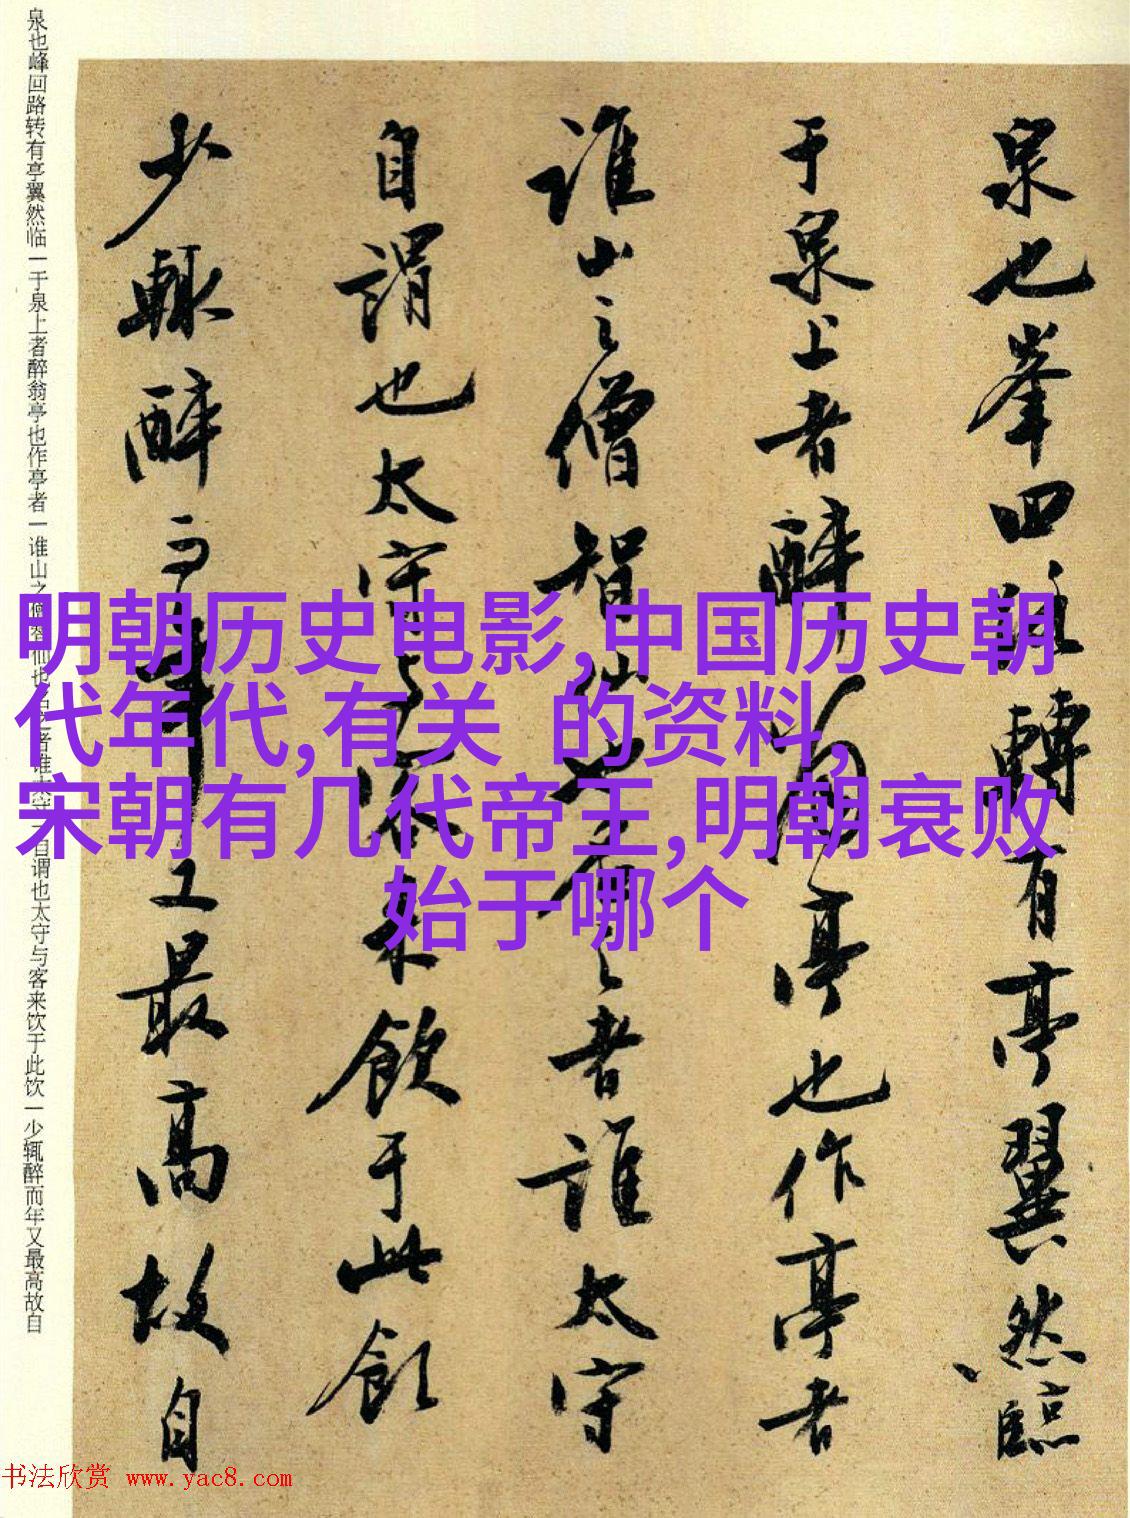 泉也峰回路转有亭翼然临一于泉上者醉翁亭也作亭者一谁山之僧智仙也名之者谁太守一自谓也太守与客来饮于此饮一少辄醉而年又最高故自
泉也峯回路轉有亭翼然臨
于泉上者醉翁亭也作亭者
誰山之僧智仙也名之者誰太守
自謂也太守与客来飲于此飲
少輒醉而年又最高故自
明朝历史电影,中国历史朝
代年代,有关 的资料,
宋朝有几代帝王,明朝衰败
始于哪个
书法欣赏 www.yac8.com